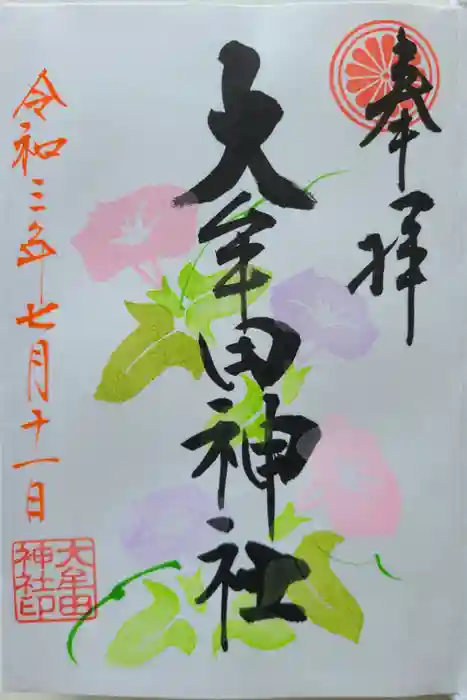 奉拝
大牟田神社
令和三年七月十一日
大牟田
神社印